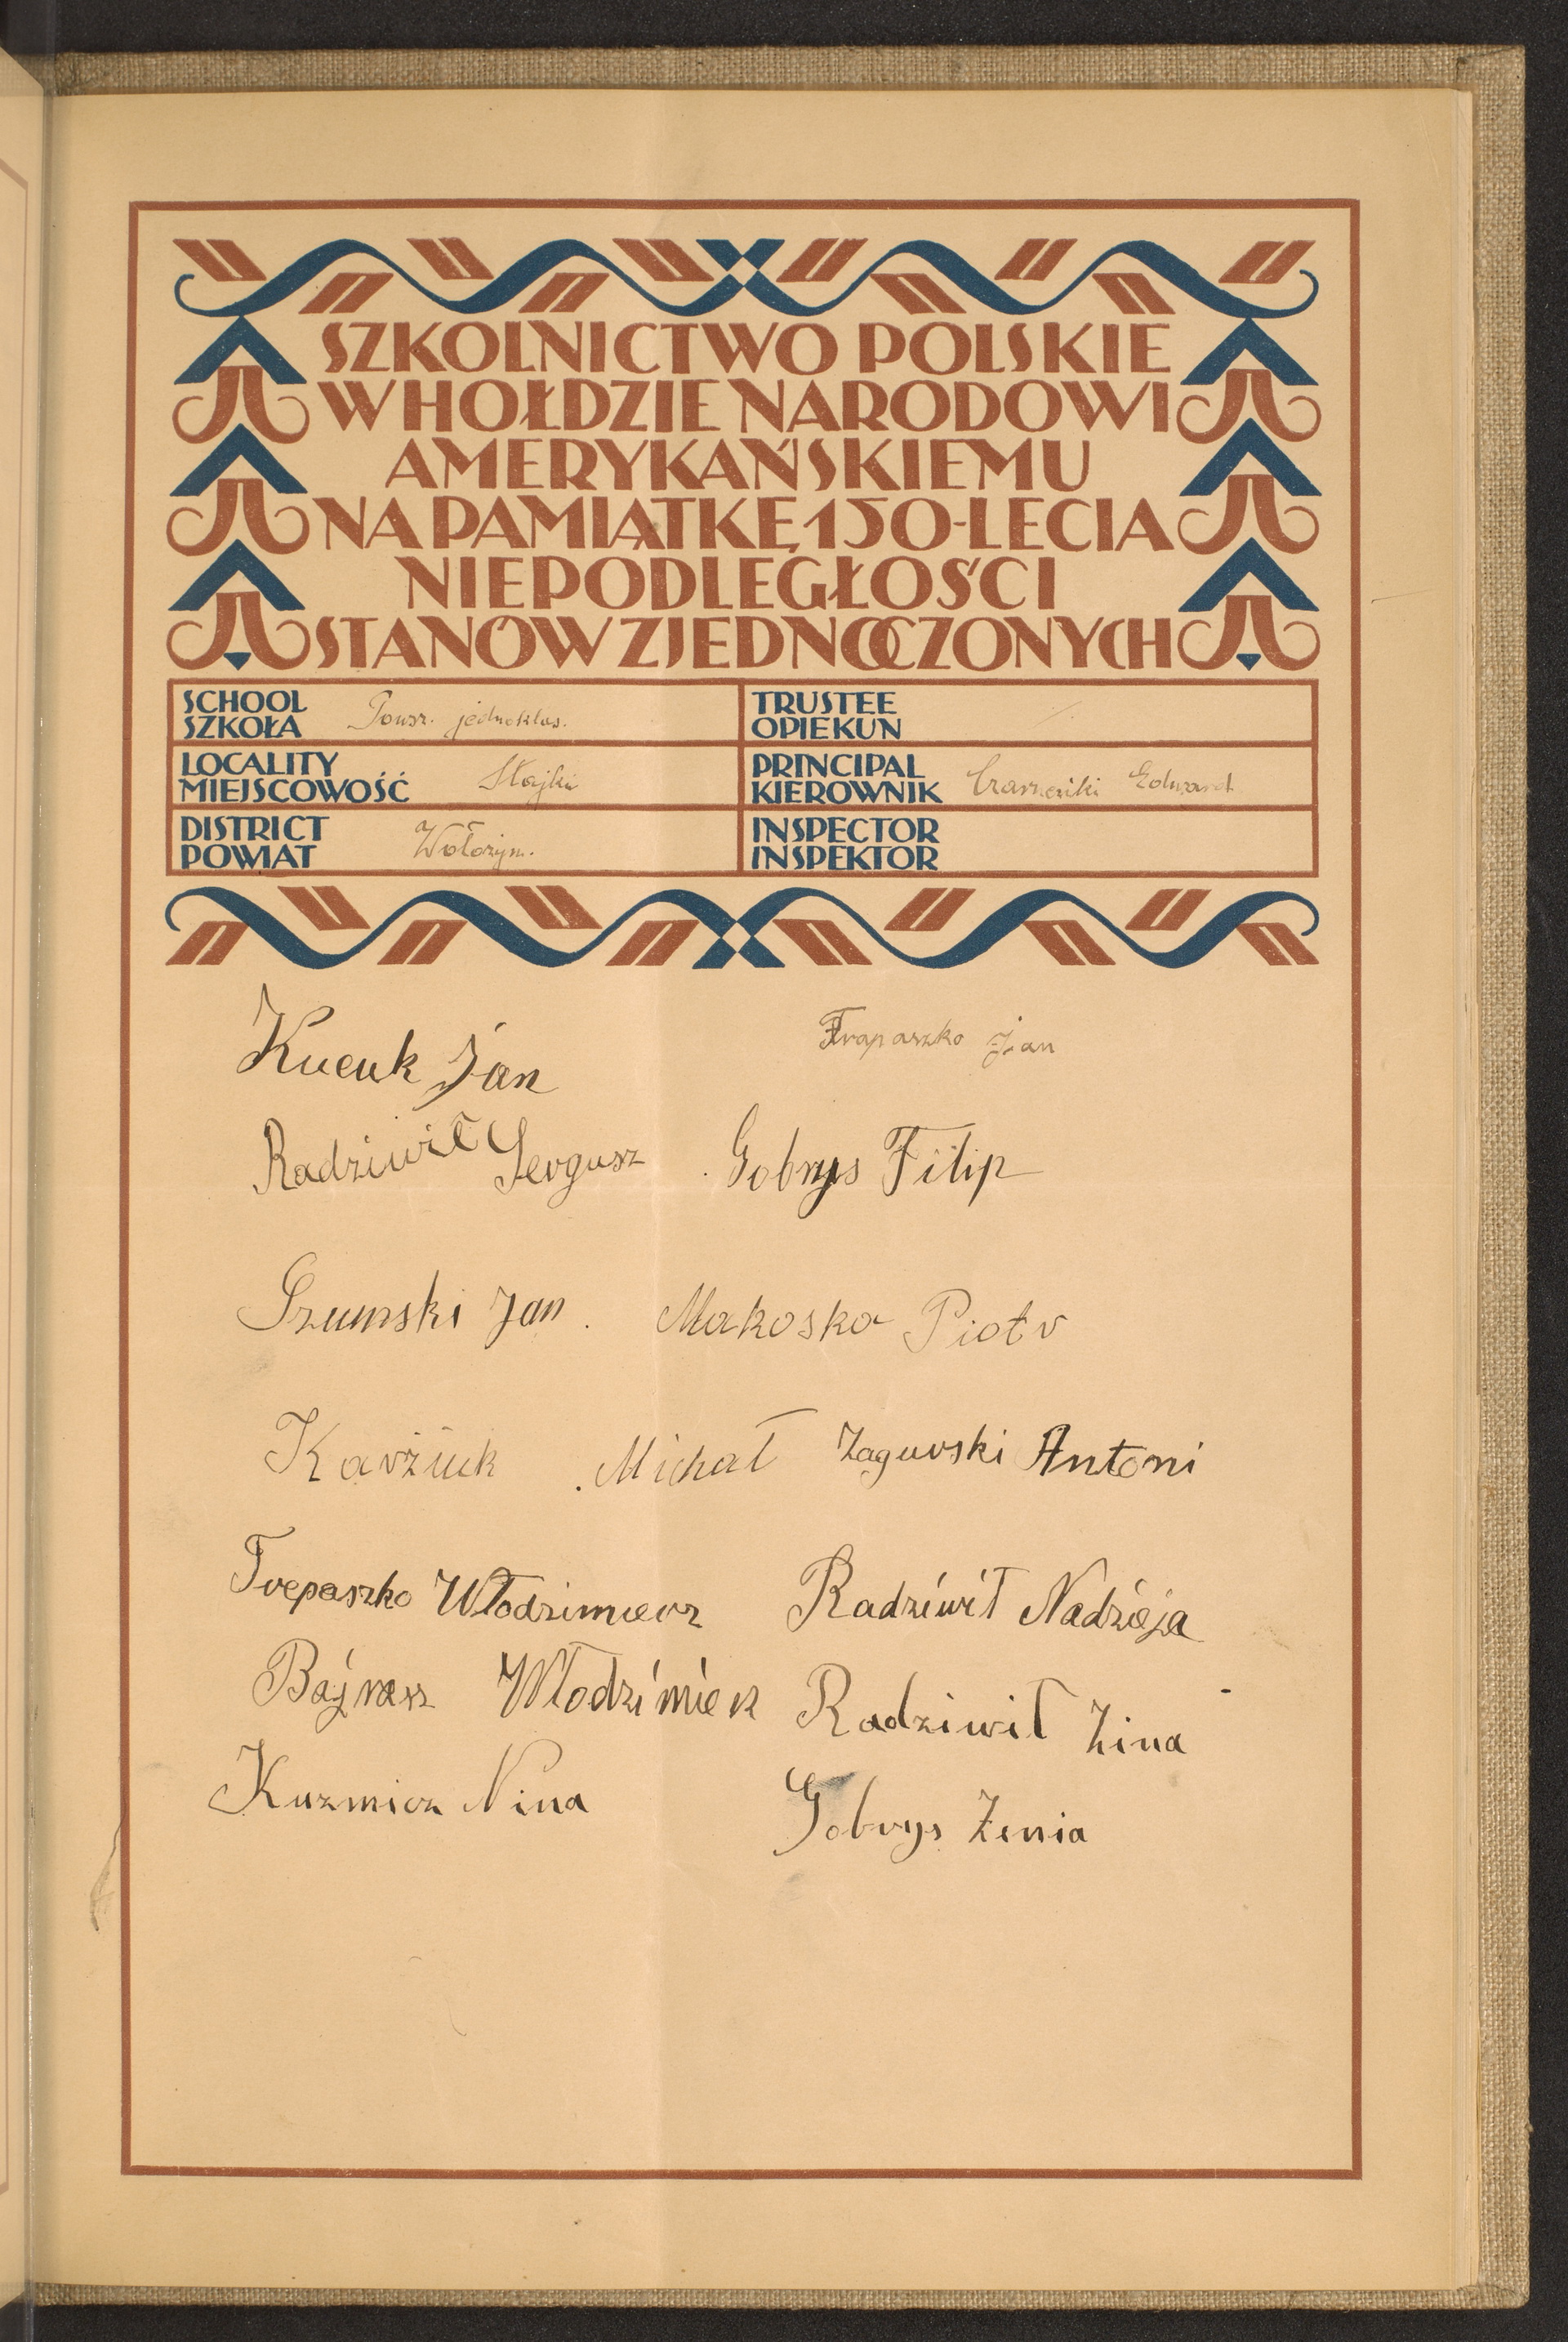 SZKOLNICTWO POLSKIE
W HOŁDZIE NARODOWI
AMERYKAŃSKIEMU
NA PAMIĄTKĘ 150-LECIA
NIEPODLEGŁOŚCI
STANÓW ZJEDNOCZONYCH
SCHOOL
SZKOŁA Powsz. jednoklas.
TRUSTEE
OPIEKUN
LOCALITY
MIEJSCOWOŚĆ Stajki
PRINCIPAL
KIEROWNIK Edward
DISTRICT
POWIAT Wołożyn.
INSPECTOR
INSPEKTOR
Kucuk Jan
Trapaszko Jan
Radziwił Sergusz
Gobrys Filip
Szumski Jan.
Makoska Piotr
Karżuk Michał
Zagurski Antoni
Trepaszko Włodzimierz
Radziwił Nadzieja
Bajrasz Włodzimierz
Radziwił Zina
Kuzmicz Nina
Gobrys Zenia